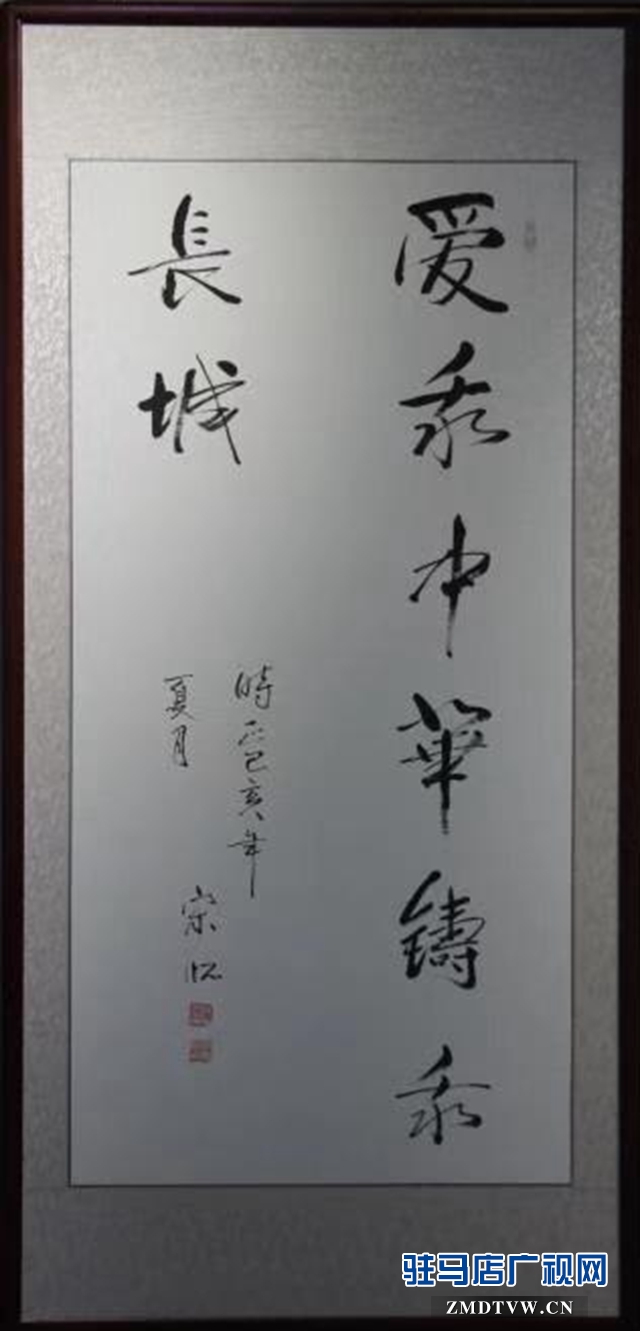 爱我中華鑄我
長城
時在己亥年
夏月
宋
驻马店广视网
ZMDTVW.CN